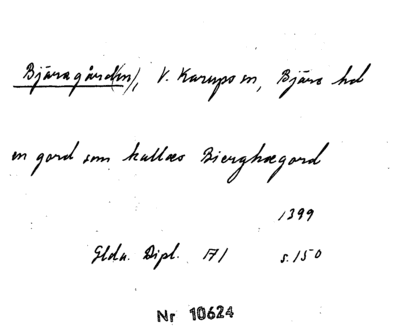 Bjäragård(en), V. Karups sn, Bjäre hd
en gord som kallæs Bierghægord
1399
Glda. Dipl. 171 s. 150
Nr 10624